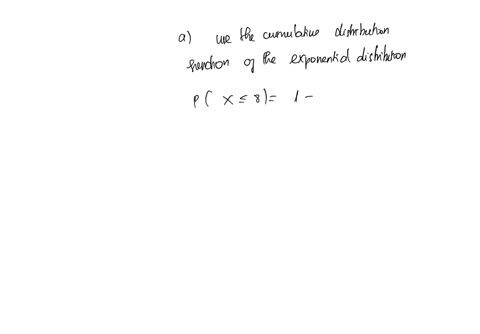 a) use the cumulative distribution
function of the exponential distribution
P( X ≤ 8) = 1 -